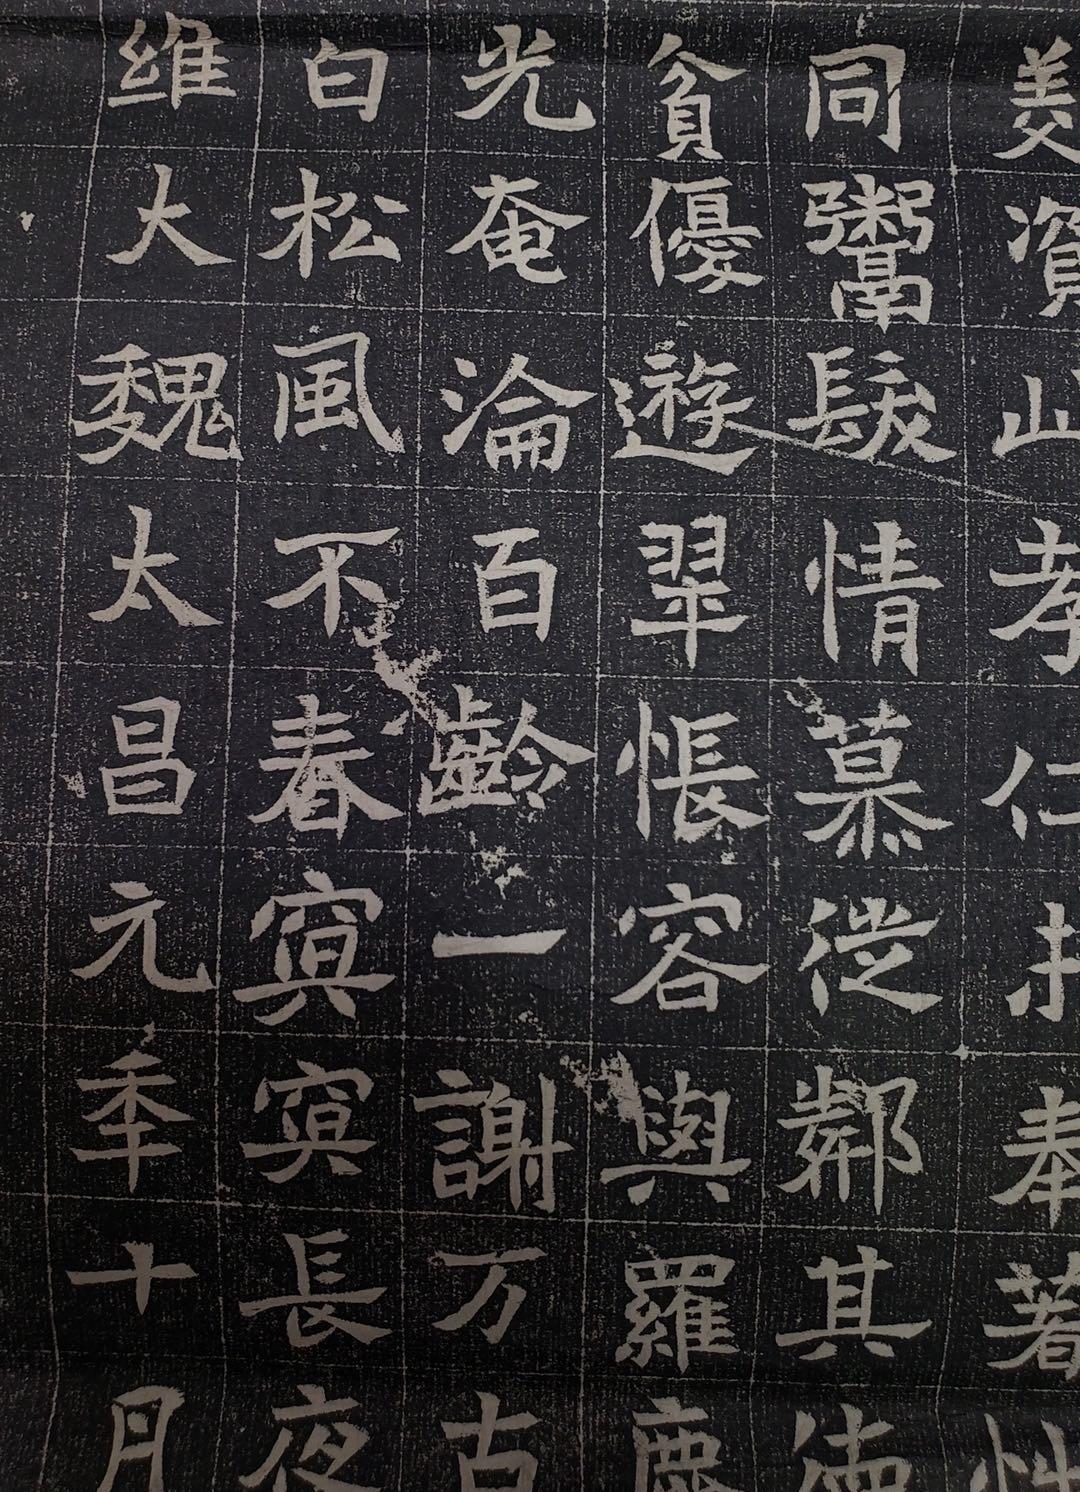 美資山孝仁奉著性
同鬻髮情慕從鄰其德
貪優遊翠帳容與羅
光奄淪百齡一謝万古
白松風不春㝠㝠長夜
維大魏太昌元秊十月